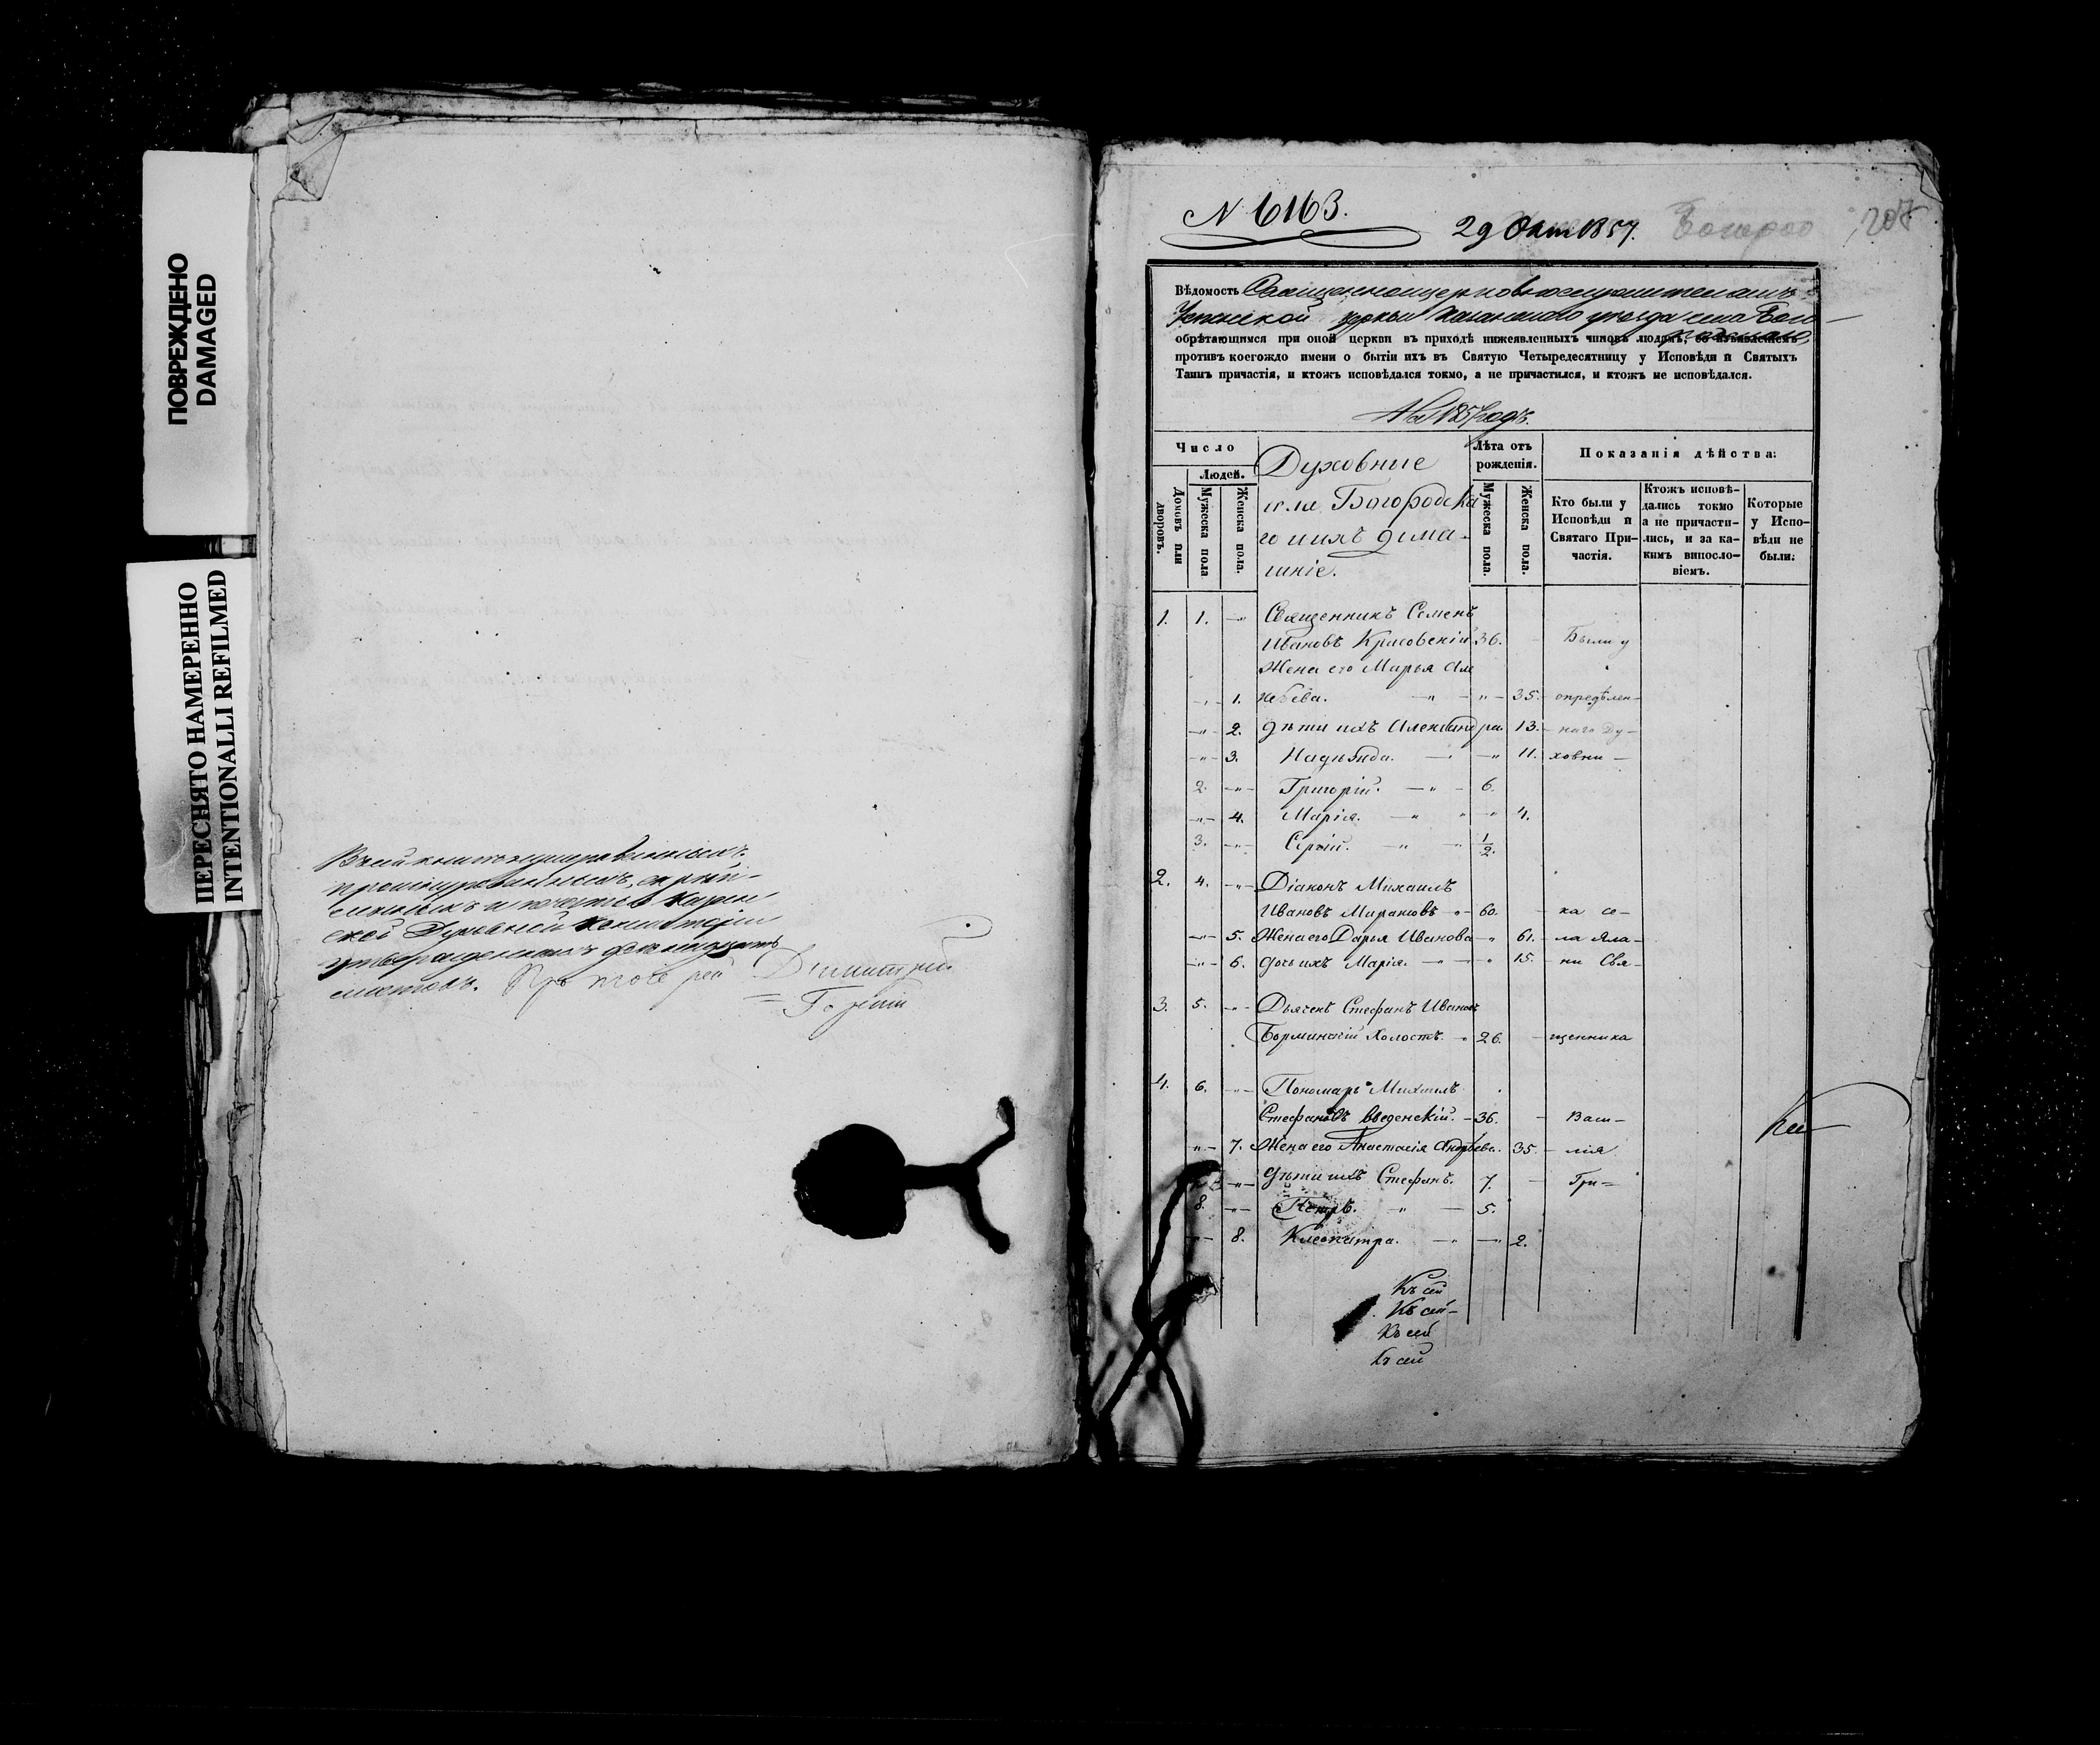 ПОВРЕЖДЕНО
DAMAGED
ПЕРЕСНЯТО НАМЕРЕННО
INTENTIONALLI REFILMED
скрѣп-
Духовной Консисторіи
листовъ. Протоіерей Димитрій
N 6163.
29 Окт 1857.
Вѣдомость
Успенской церкви Казанского уѣзда села Бого-
родскаго,
обрѣтающимся при оной церкви въ приходѣ нижеявленныхъ чиновъ людямъ, со изъявленіемъ
противъ коегождо имени о бытіи ихъ въ Святую Четыредесятницу у Исповѣди и Святыхъ
Таинъ причастія, и ктожъ исповѣдался токмо, а не причастился, и ктожъ не исповѣдался.
На 1857 годъ.
Число
Людей.
Домовъ или дворовъ.
Мужеска пола
Женска пола.
Духовные
села Богородска
го и ихъ дома-
шніе.
Лѣта отъ рожденія.
Мужеска пола.
Женска пола.
Показанія дѣйства:
Кто были у Исповѣди и Святаго При-частія.
Ктожъ исповѣ-дались токмо а не причасти-лись, и за ка-кимъ винословіемъ.
Которые у Испо-вѣди не были:
1. 1. -"- Священникъ Семенъ
Ивановъ Красовскій 36. Были у
Жена его Марья Але
-"- 1. ксѣева. -"- 35. опредѣлен-
-"- 2. дѣти ихъ Александра 13. наго Ду-
-"- 3. Надѣжда. -"- 11. ховни-
2. -"- Григорій. -"- 6.
-"- 4. Марія. -"- 4.
3. -"- Сергій. -"- 1/2.
2. 4. -"- Діаконъ Михаилъ
Ивановъ 60. ка се-
-"- 5. Жена его Дарья Иванова -"- 61. ла Яла-
-"- 6. дочь ихъ Марія. -"- 15. ни Свя-
3. 5. -"- Дьячекъ Стефанъ Ивановъ
Борминскій Холостъ. 26. щенника
4. 6. -"- Пономарь Михаилъ
Стефановъ Введенскій. 36. Васи-
-"- 7. Жена его Анастасія Андрѣева. 35. лія
7. -"- дѣти ихъ Стефанъ. 7. Гри=
8. -"- Петръ. -"- 5.
-"- 8. Клеопатра. -"- 2.
Къ сей
Къ сей-
Къ сей
Къ сей